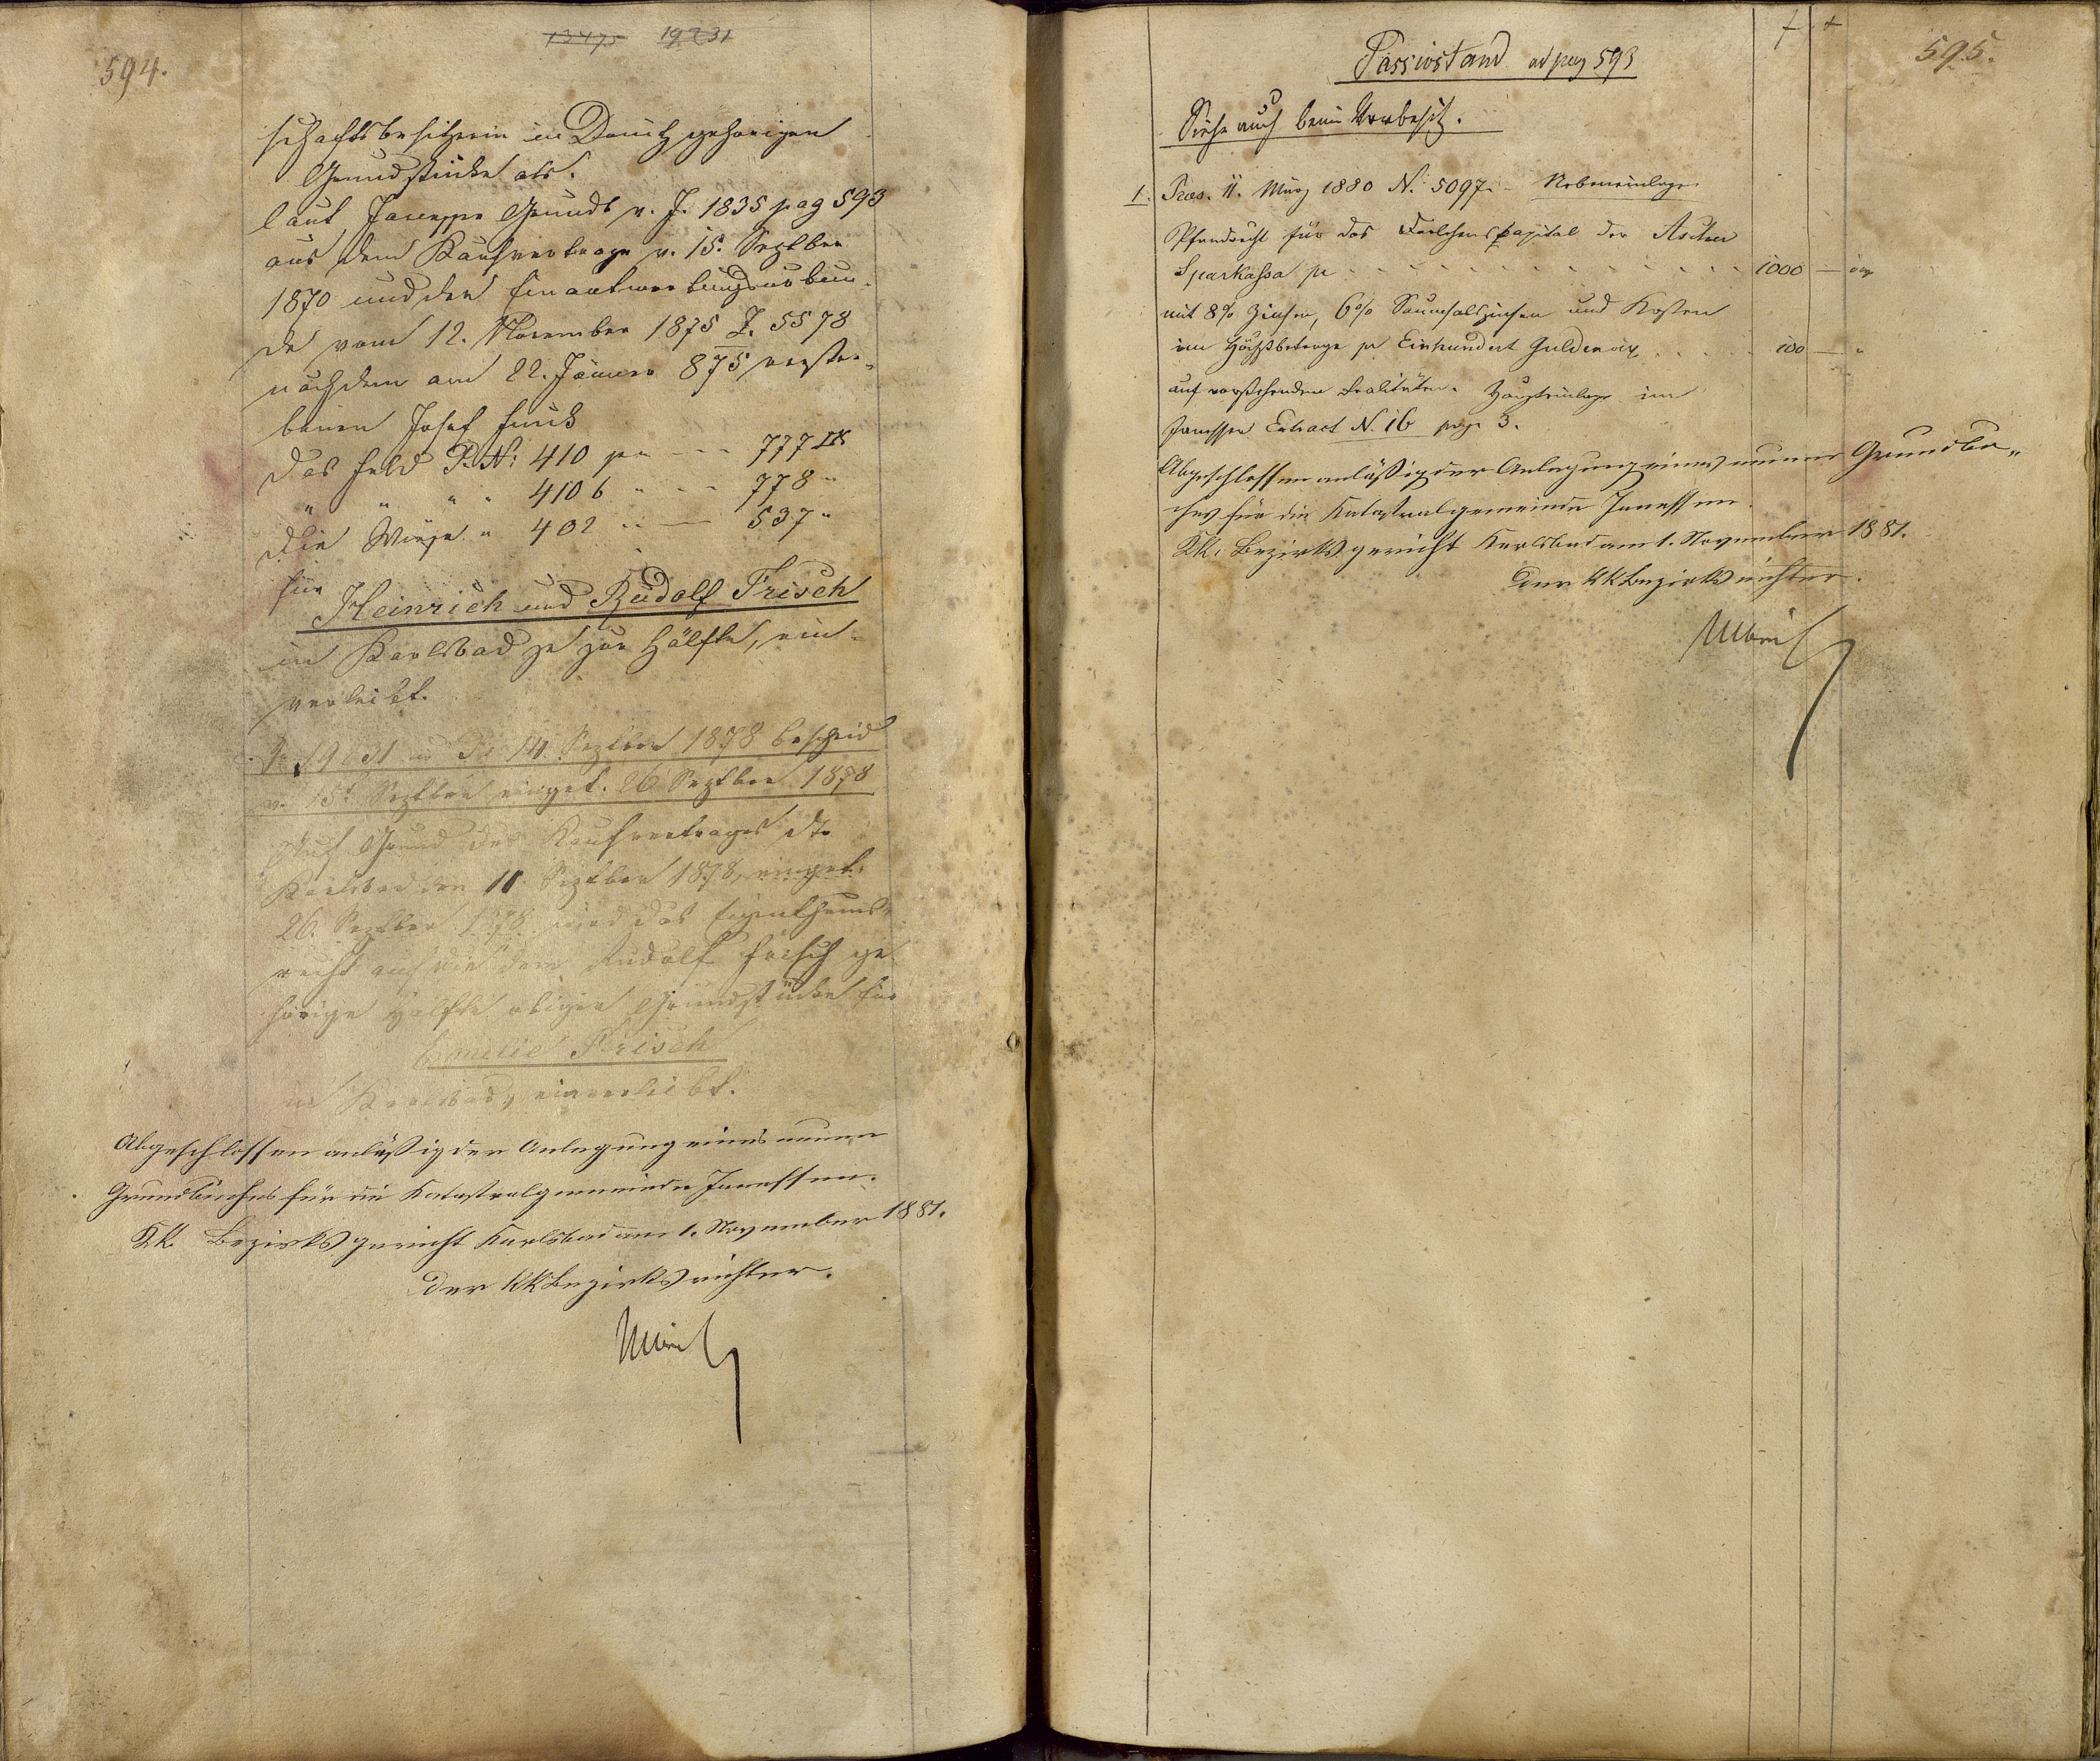 594.
13475 19231
schaftsbesitzerin in Donitz gehörigen
Grundstücke als.
laut Janessen Grundb v. J. 1835 pag 593
aus dem Kaufvertrage v. 15. Septber
1870 und der Einantwortungsurkun-
de vom 12. November 1875 Z. 5578
nach dem am 22. Jänner 875 verstor-
benen Josef
das Feld P. N: 410 per --- 777 □K
" " " " 410 b " -- 778 "
die Wiese " 402 " -- 537 "
für
Heinrich und Rudolf Frisch
in Karlsbad je zur Hälfte, ein-
verleibt.
14. Septber 1878 Bescheid
v. 15. Septber einget. 26 Septber 1878
Auf Grund des Kaufvertrages dto
Karlsbad den 11. Septber 1878, einget.
26. Septber 1878 wird das Eigenthums-
recht auf die dem Rudolf Frisch ge
hörige Hälfte obiger Grundstücke für
Frisch
in Karlsbad, einverleibt.
Abgeschlossen anläßig der Anlegung eines neuen
Grundbuches für die Katastralgemeinde Janessen.
KK. Bezirksgericht Karlsbad am 1. November 1881.
Der KK Bezirksrichter.
595.
Passivstand ad pag 593
Siehe auch beim Vorbesitz.
1. Praes. 11. März 1880 N. 5097. – Nebeneinlage
Pfandrecht für das Darlehenskapital der Ascher
Sparkassa pr - - - - 1000 — öW
mit 8% Zinsen, 6% Saumsalszinsen und Kosten
im Höchstbetrage pr Einhundert Gulden öW . . . . 100 — "
auf vorstehenden Realitäten. Haupteinlage im
Janessen Extract N. 16 pag. 3.
Abgeschlossen anläßig der Anlegung eines neuen Grundbu„
ches für die Katastralgemeinde Janessen.
KK. Bezirksgericht Karlsbad am 1. November 1881.
Der KK Bezirksrichter.